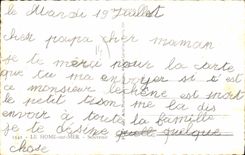 le Mardi 19 Juillet
cher papa cher maman
je te merci pour la carte
que tu ma envoyer si s'est
ce monsieur le chêne est mort
le petit tison me la dis
envoir à toute la famille
je te dessine quelque
chose
LE HOME-sur-MER - Souvenir